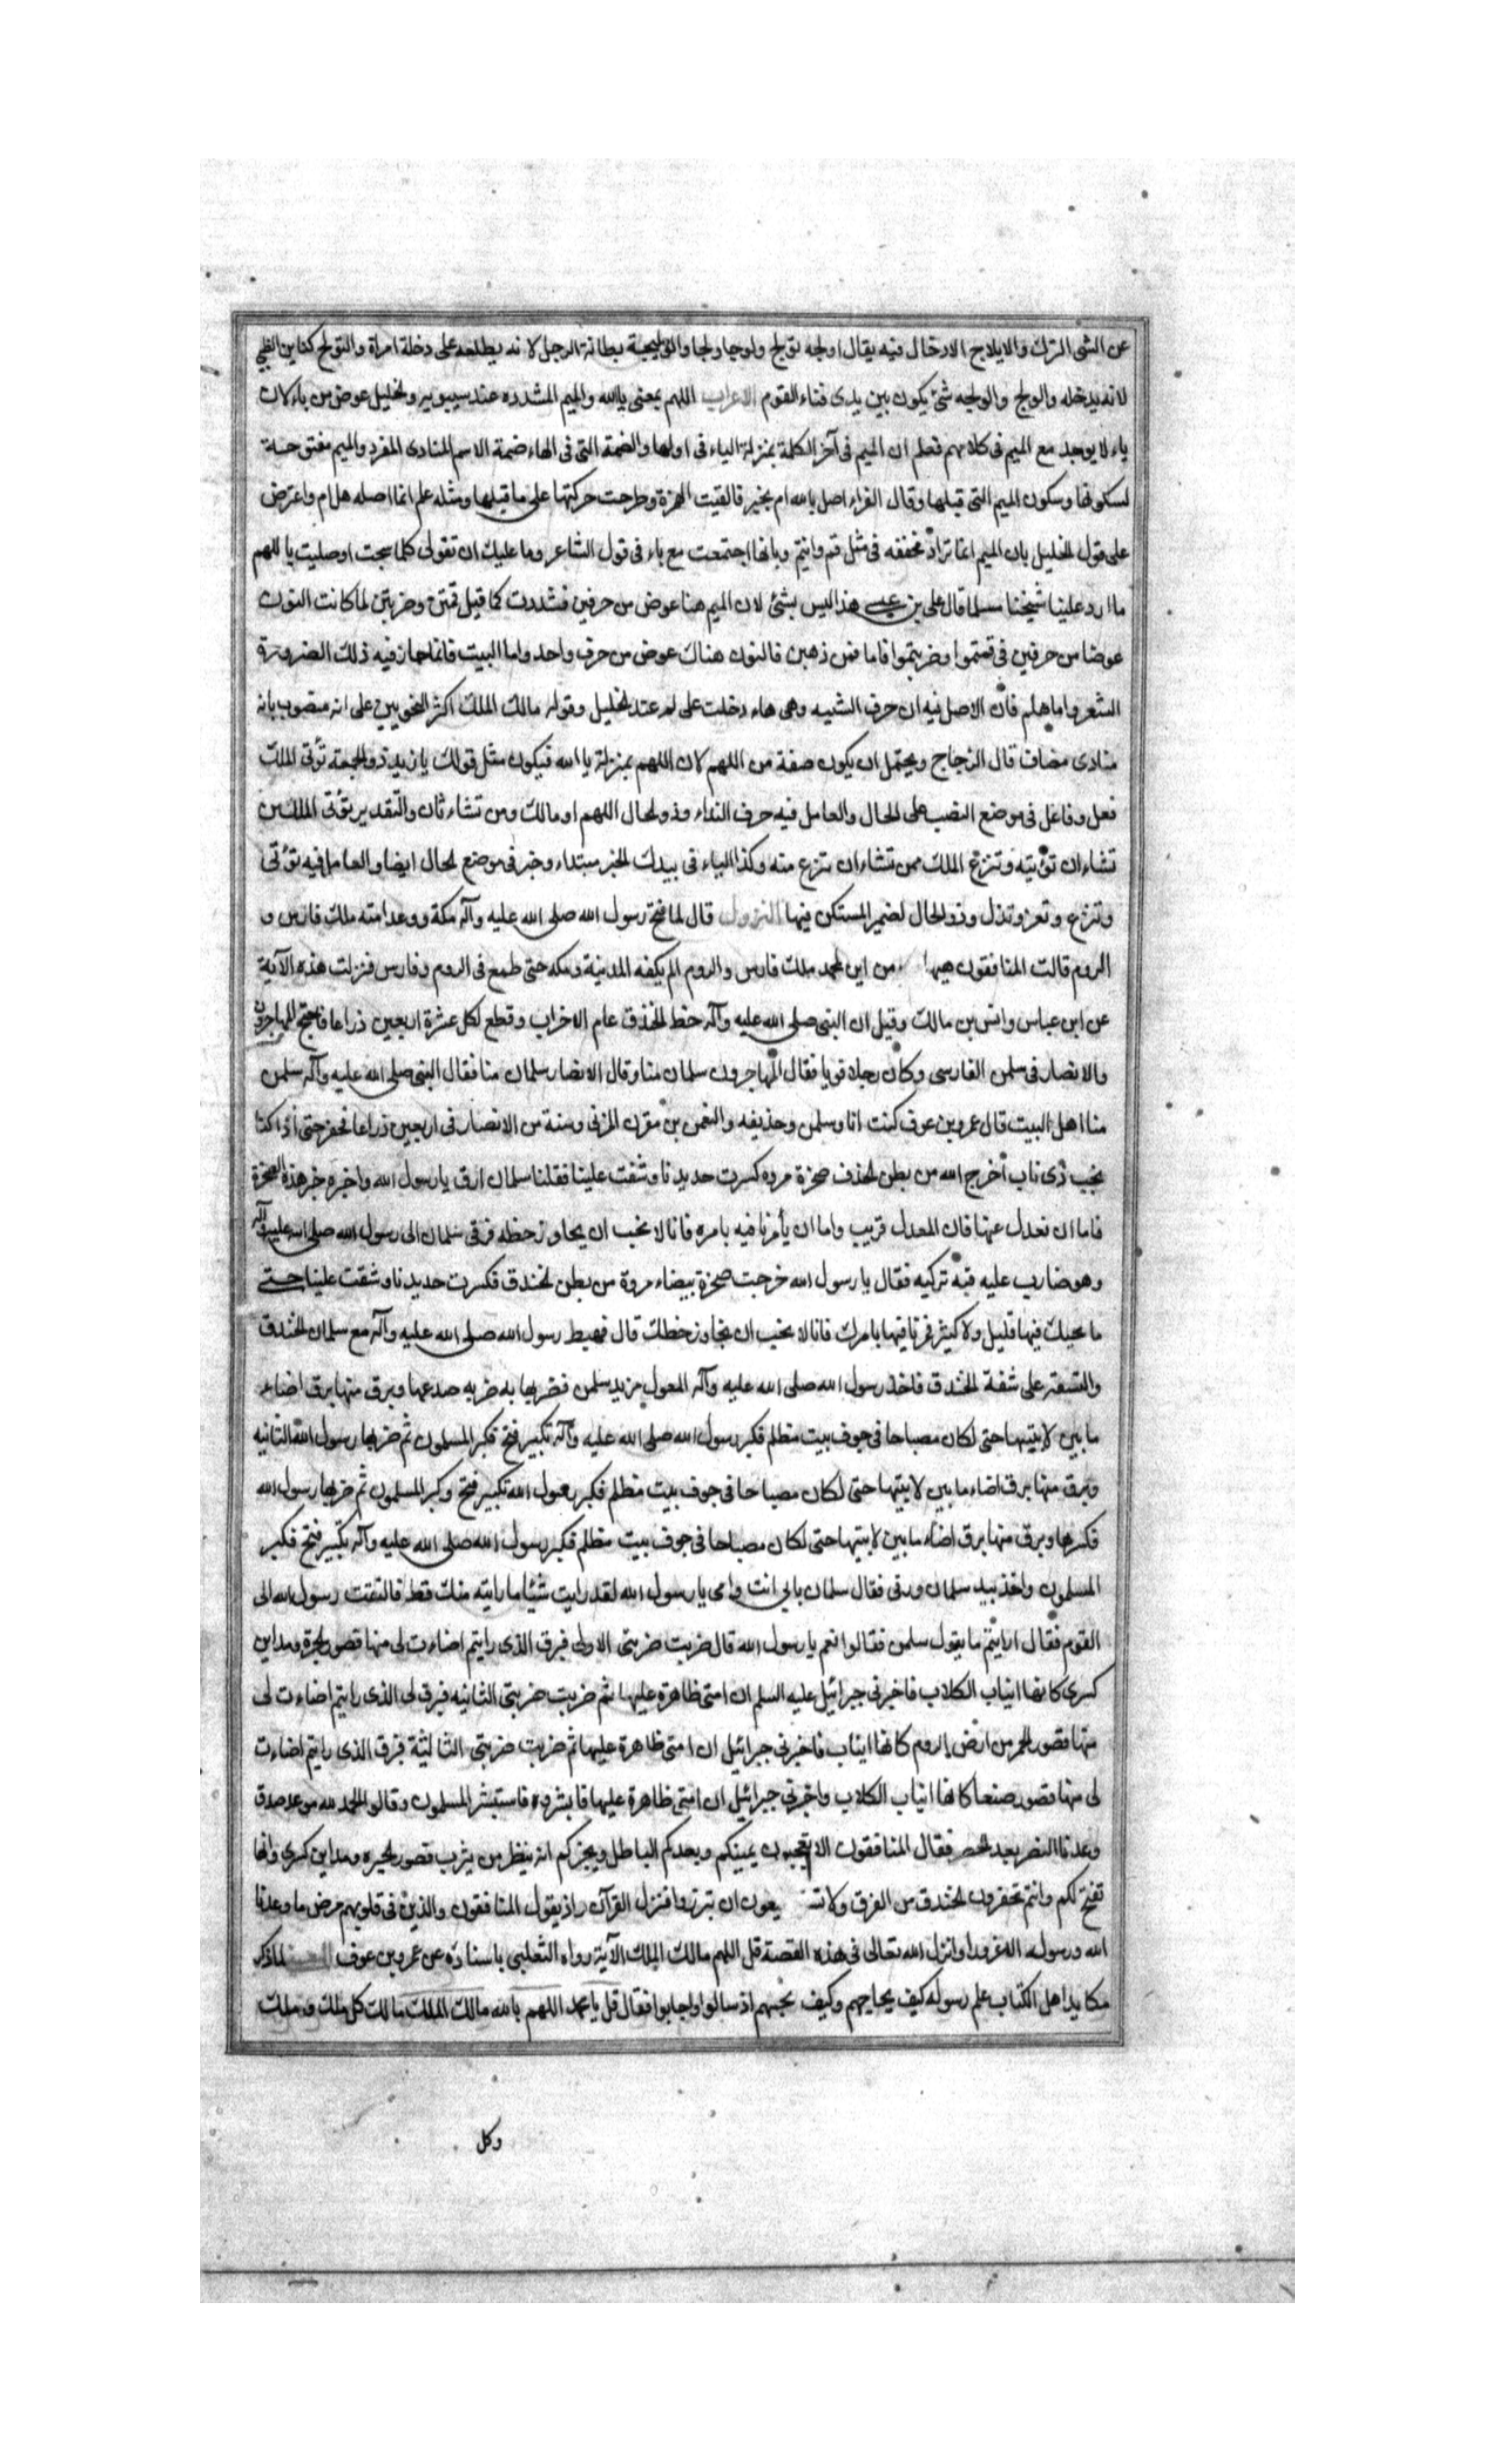 عن الشئ الترك والايلاج الادخال فيه يقال اولجه تولج ولوجا ولجا والوليجة بطانة الرجل لانه يطلعه على دخلة امراة والتولج كناس الظبي
لانه يدخله والولج والولجه شئ يكون بين يدى فناء القوم الاعراب اللهم بمعنى يا الله والميم المشدده عند سيبويه والخليل عوض من ياء لان
ياء لا يوجد مع الميم فى كلامهم فعلم ان الميم فى آخر الكلمة بمنزلة الياء فى اولها والضمة التى فى الهاء ضمة الاسم المنادى المفرد والميم مفتوحة
لسكونها وسكون الميم التى قبلها وقال الفراء اصل يا الله ام بخير فالقيت الهمزة وطرحت حركتها على ما قبلها ومثله هلم انما اصله هل ام واعترض
على قول الخليل بان الميم انما تزاد مخففه فى مثل فم وابنم وبانها اجتمعت مع ياء فى قول الشاعر وما عليك ان تقولى كلما سبحت او صليت يا اللهم
ما اردد علينا شيخنا مسلما قال على بن عيسى هذا ليس بشئ لان الميم هنا عوض من حرفين فشددت كما قيل قمتن وضربتن لما كانت النون
عوضا من حرفين فى قمتموا وضربتموا فاما قمن وذهبن فالنون هناك عوض من حرف واحد واما البيت فانما جاز فيه ذلك الضرورة
الشعر واما هلم فان الاصل فيه ان حرف التنبيه وهى هاء دخلت على لم عند الخليل وقوله مالك الملك اكثر النحويين على انه منصوب بانه
منادى مضاف قال الزجاج ويحتمل ان يكون صفة من اللهم لان اللهم بمنزلة يا الله فيكون مثل قولك يا زيد ذو الجمة تؤتى الملك
فعل وفاعل فى موضع النصب على الحال والعامل فيه حرف النداء وذو الحال اللهم او مالك ومن تشاء ثان والتقدير تؤتى الملك من
تشاء ان تؤتيه وتنزع الملك ممن تشاء ان تنزع منه وكذا الباء فى بيدك الخير مبتداء وخبر فى موضع الحال ايضا والعامل فيه تؤتى
وتنزع وتعز وتذل وذو الحال لضمير المستكن فيها النزول قال لما فتح رسول الله صلى الله عليه وآله مكة ووعد امته ملك فارس و
الروم قالت المنافقون هيها من اين لمحمد ملك فارس والروم الم يكفه المدينة ومكه حتى طمع فى الروم وفارس فنزلت هذه الآية
عن ابن عباس وانس بن مالك وقيل ان النبى صلى الله عليه وآله خط الخندق عام الاحزاب وقطع لكل عشرة اربعين ذراعا فاحتج المهاجرون
والانصار فى سلمن الفارسى وكان رجلا قويا فقال المهاجرون سلمان منا وقال الانصار سلمان منا فقال النبى صلى الله عليه وآله سلمن
منا اهل البيت قال عمرو بن عوف كنت انا وسلمن وحذيفه والنعمن بن مقرن المزنى وستة من الانصار فى اربعين ذراعا فحفرنا حتى اذا كنا
بجنب ذى ناب اخرج الله من بطن الخندق صخرة مروه كسرت حديدنا وشقت علينا فقلنا سلمان ارق يا رسول الله واخبره خبر هذه الصخرة
فاما ان نعدل عنها فان المعدل قريب واما ان يأمرنا فيه بامره فانا لا نحب ان نجاوز خطه فرقى سلمان الى رسول الله صلى الله عليه وآله
وهو ضارب عليه قبه تركيه فقال يا رسول الله خرجت صخرة بيضاء مروة من بطن الخندق فكسرت حديدنا وشقت علينا حتى
ما يحيك فيها قليل ولا كثير فمرنا فيها بامرك فانا لا نحب ان نجاوز خطك قال فهبط رسول الله صلى الله عليه وآله مع سلمان الخندق
والتسعة على شفة الخندق فاخذ رسول الله صلى الله عليه وآله المعول من يد سلمن فضربها به ضربه صدعها وبرق منها برق اضاء
ما بين لابتيها حتى لكان مصباحا فى جوف بيت مظلم فكبر رسول الله صلى الله عليه وآله تكبير فتح فكبر المسلمون ثم ضربها رسول الله الثانيه
وبرق منها برق اضاء ما بين لابتيها حتى لكان مصباحا فى جوف بيت مظلم فكبر رسول الله تكبير فتح وكبر المسلمون ثم ضربها رسول الله
فكسرها وبرق منها برق اضاء ما بين لابتيها حتى لكان مصباحا فى جوف بيت مظلم فكبر رسول الله صلى الله عليه وآله تكبير فتح فكبر
المسلمون واخذ بيد سلمان ورقى فقال سلمان بابي انت وامى يا رسول الله لقد رايت شيئا ما رايته منك قط فالتفت رسول الله الى
القوم فقال ارايتم ما يقول سلمن فقالوا نعم يا رسول الله قال ضربت ضربتى الاولى فبرق الذى رايتم اضاءت لى منها قصور الحيرة ومداين
كسرى كانها انياب الكلاب فاخبرنى جبرائيل عليه السلم ان امتى ظاهرة عليها ثم ضربت ضربتى الثانيه فبرق لى الذى رايتم اضاءت لى
منها قصور الحمر من ارض الروم كانها انياب فاخبرنى جبرائيل ان امتى ظاهرة عليها ثم ضربت ضربتى الثالثة فبرق الذى رايتم اضاءت
لى منها قصور صنعا كانها انياب الكلاب واخبرنى جبرائيل ان امتى ظاهرة عليها فابشروا فاستبشر المسلمون وقالوا الحمد لله موعد صدق
وعدنا النصر بعد الحصر فقال المنافقون الا تعجبون يمنيكم ويعدكم الباطل ويخبركم انه ينظر من يثرب قصور الحيره ومداين كسرى وانها
تفتح لكم وانتم تحفرون الخندق من الفرق ولا تستطيعون ان تبرزوا فنزل القرآن واذ يقول المنافقون والذين فى قلوبهم مرض ما وعدنا
الله ورسوله الا غرورا وانزل الله تعالى فى هذه القصة قل اللهم مالك الملك الآية رواه الثعلبى باسناده عن عمرو بن عوف لما ذكر
مكايد اهل الكتاب علم رسوله كيف يحاجهم وكيف يجيبهم اذ سالوا واجابوا فقال قل يا محمد اللهم يا الله مالك الملك مالك كل ملك وملك
وكل